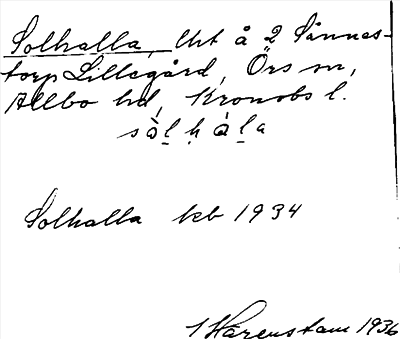 Solhalla, lht å 2 Sånnas-
torp Lillegård, Örs sn,
Allbo hd, Kronobs l.
sòl̠ḥàl̠a
Solhalla keb 1934
I Harenstam 1936